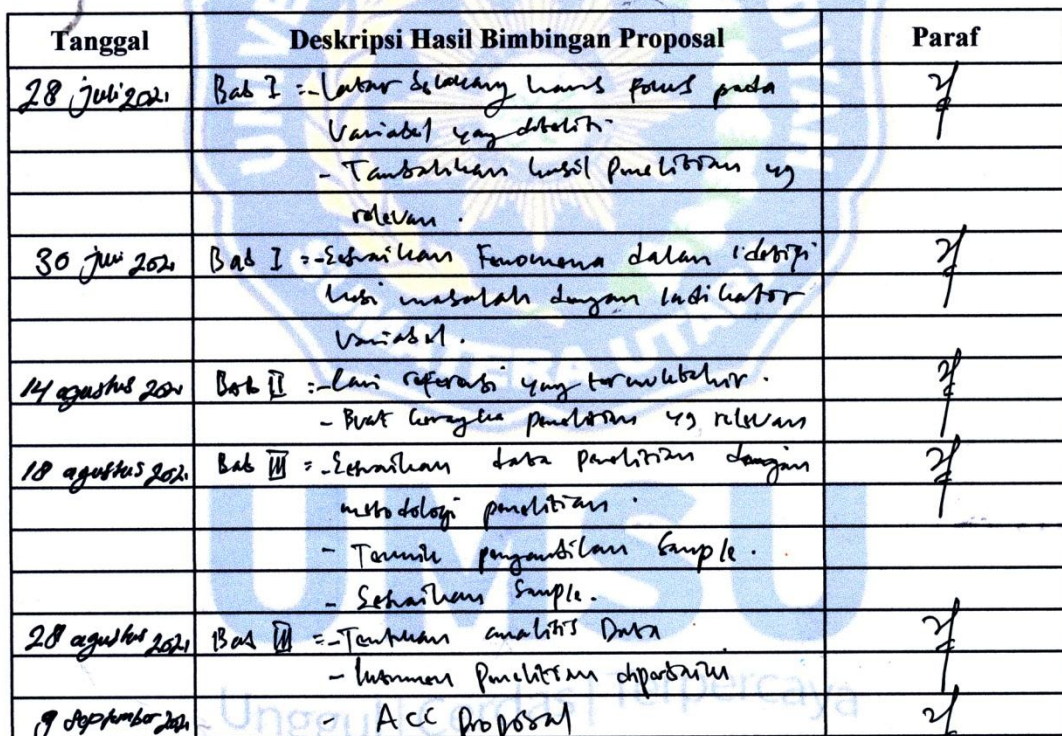 Tanggal Deskripsi Hasil Bimbingan Proposal Paraf
28 juli 2021 Bab I :- Latar belakang harus fokus pada
Variabel yang diteliti
- Tambahkan hasil penelitian yg
relevan.
30 juli 2021 Bab I :- Sesuaikan Fenomena dalam identifi
kasi masalah dengan indikator
Variabel.
14 agustus 2021 Bab II :- Cari referensi yang termuktahir.
- Buat kerangka penelitian yg relevan
18 agustus 2021 Bab III :- Sesuaikan data penelitian dengan
metodologi penelitian.
- Teknik pengambilan Sample.
- Sesuaikan Sample.
28 agustus 2021 Bab III :- Tentukan analisis Data
- Instrumen Penelitian diperbaiki
9 September 2021 - ACC Proposal
UMSU
Unggul | Cerdas | Terpercaya